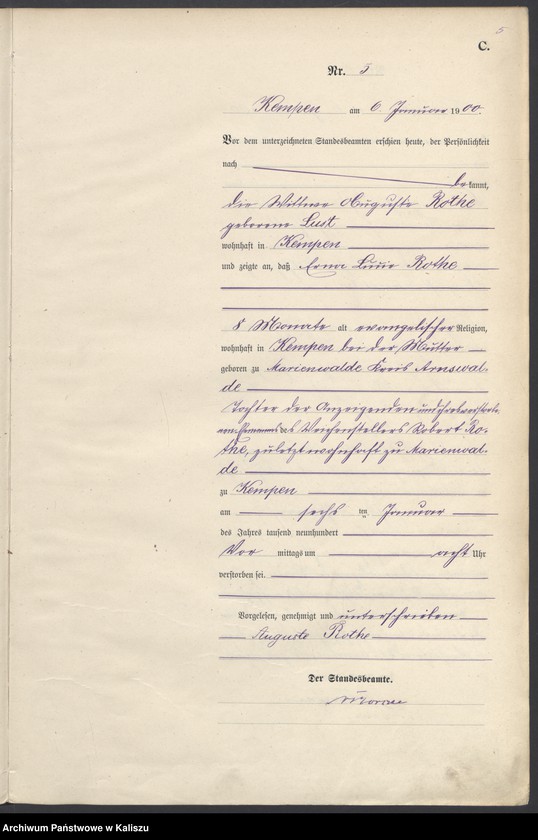 5
C.
Nr. 5
Kempen am 6. Januar 1900.
Vor dem unterzeichneten Standesbeamten erschien heute, der Persönlichkeit
nach
bekannt,
die Wittwe Auguste Rothe
geborene Lust
wohnhaft in Kempen
und zeigte an, daß Erna Lucie Rothe
8 Monate alt evangelischer Religion,
wohnhaft in Kempen bei der Mutter
geboren zu Marienwalde Kreis Arnswal-
de
Tochter der Anzeigenden und ihres verstorbe-
nen Ehemannes des Weichenstellers Robert Ro-
the, zuletzt wohnhaft zu Marienwal-
de
zu Kempen
am sechsten Januar
des Jahres tausend neunhundert
Vor mittags um acht Uhr
verstorben sei.
Vorgelesen, genehmigt und unterschrieben
Auguste Rothe
Der Standesbeamte.
Archiwum Państwowe w Kaliszu